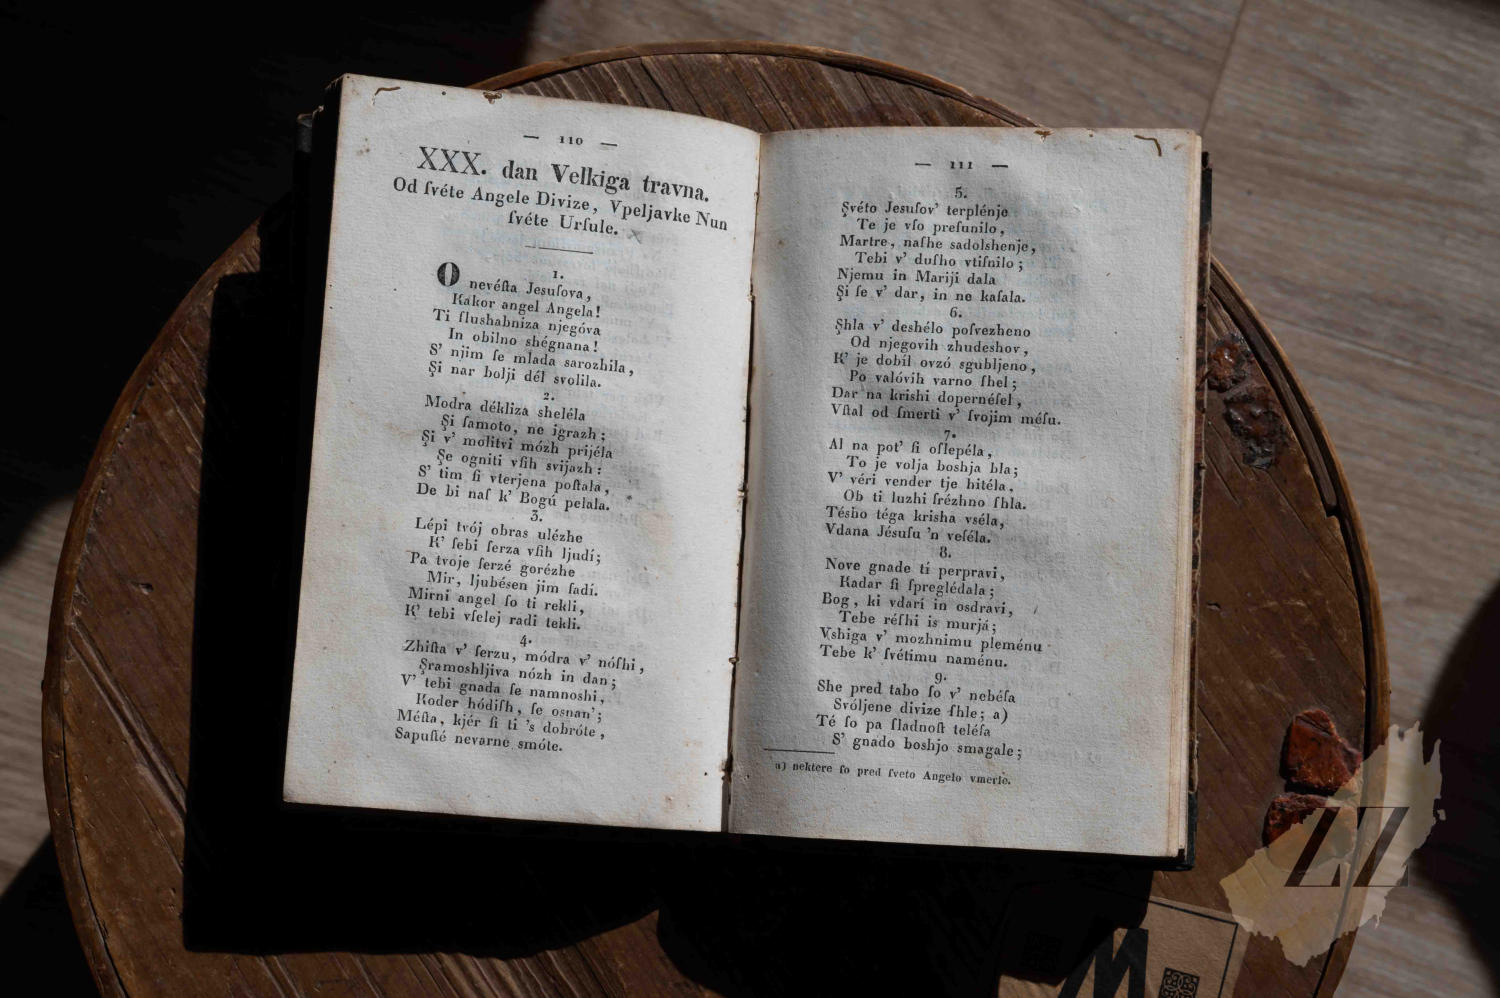 — 110 —
XXX. dan Velkiga travna.
Od ſvéte Angele Divize, Vpeljavke Nun
ſvéte Urſule.
1.
O nevéſta Jesuſova,
Kakor angel Angela!
Ti ſlushabniza njegóva
In obilno shégnana!
S' njim ſe mlada sarozhila,
Şi nar bolji dél svolila.
2.
Modra dékliza sheléla
Şi ſamoto, ne igrazh;
Şi v' molitvi mózh prijéla
Şe ogniti vſih svijazh:
S' tim ſi vterjena poſtala,
De bi naſ k' Bogú pelala.
3.
Lépi tvój obras ulézhe
K' ſebi ſerza vſih ljudí;
Pa tvoje ſerzé gorézhe
Mir, ljubésen jim ſadí.
Mirni angel ſo ti rekli,
K' tebi vſelej radi tekli.
4.
Zhiſta v' ſerzu, módra v' nóſhi,
Şramoshljiva nózh in dan;
V' tebi gnada ſe namnoshi,
Koder hódiſh, ſe osnan';
Méſta, kjér ſi ti 's dobróte,
Sapuſté nevarne smóte.
— 111 —
5.
Şvéto Jesuſov' terplénje
Te je vſo preſunilo,
Martre, naſhe sadolshenje,
Tebi v' duſho vtiſnilo;
Njemu in Mariji dala
Şi ſe v' dar, in ne kaſala.
6.
Şhla v' deshélo poſvezheno
Od njegovih zhudeshov,
K' je dobíl ovzó sgubljeno,
Po valóvih varno ſhel;
Dar na krishi doperneſel,
Vſtal od ſmerti v' ſvojim méſu.
7.
Al na pot' ſi oſlepéla,
To je volja boshja bla;
V' véri vender tje hitéla,
Ob ti luzhi ſrézhno ſhla.
Tésho téga krisha vséla,
Vdana Jésuſu 'n veſéla.
8.
Nove gnade ti perpravi,
Kadar ſi ſpreglédala;
Bog, ki vdarí in osdravi,
Tebe réſhi is murjá;
Vshiga v' mozhnimu pleménu
Tebe k' ſvétimu naménu.
9.
She pred tabo ſo v' nebéſa
Svóljene divize ſhle; a)
Té ſo pa ſladnoſt teléſa
S' gnado boshjo smagale;
a) nektere ſo pred ſveto Angelo vmerle.
ZZ
M